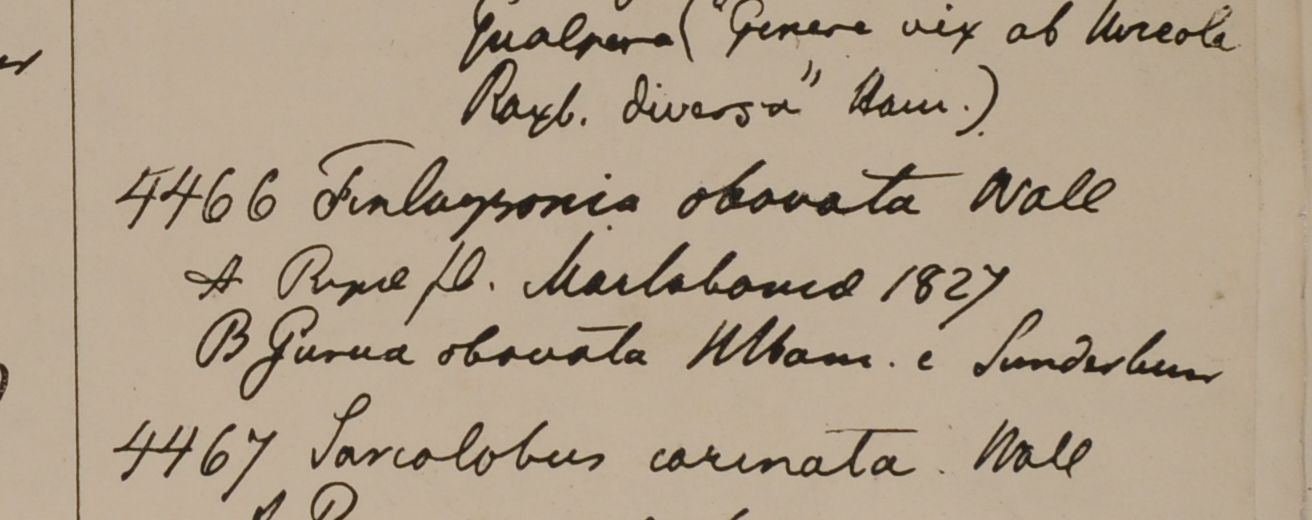 Gualpara ("Genere vix ab Urceola
Roxb. diversa" Ham.)
4466 Finlaysonia obovata Wall
A Ripæ fl. Martabaniæ 1827
B Gurua obovata HBHam. e Sunderbun
4467 Sarcolobus carinata. Wall